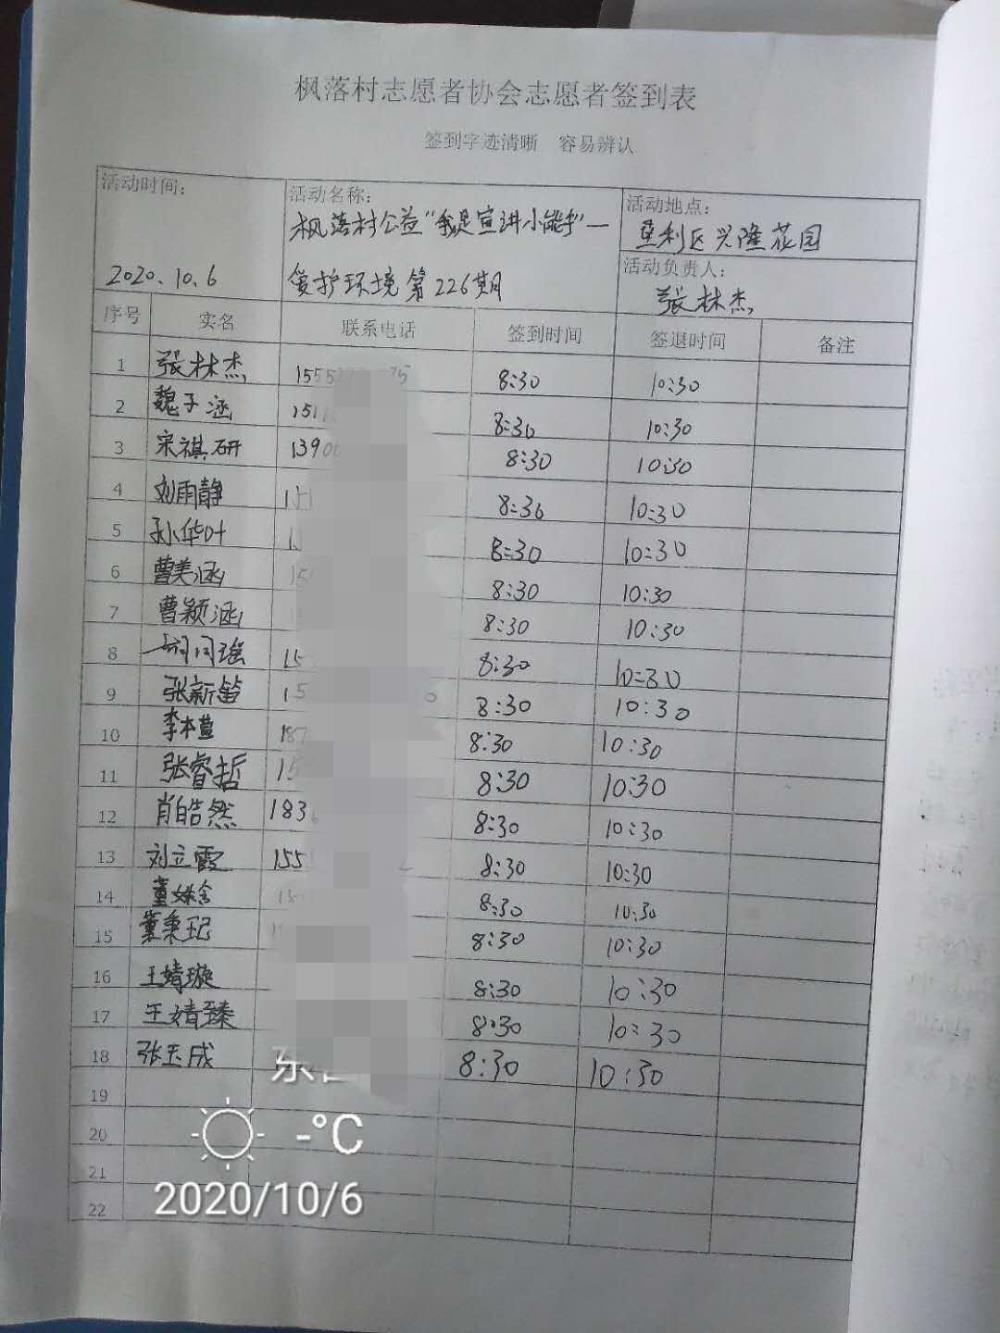 枫落村志愿者协会志愿者签到表
签到字迹清晰 容易辨认
活动时间: 活动名称: 活动地点:
枫落村公益“我是宣讲小能手”— 垦利区兴隆花园
活动负责人:
2020.10.6 爱护环境第226期 张林杰
序号 实名 联系电话 签到时间 签退时间 备注
1 张林杰 155 8:30 10:30
2 魏子涵 151 8:30 10:30
3 宋祺研 1390 8:30 10:30
4 刘雨静 15 8:30 10:30
5 孙华叶 1 8:30 10:30
6 曹美涵 15 8:30 10:30
7 曹颖涵 8:30 10:30
8 15 8:30 10:30
9 张新笛 15 8:30 10:30
10 李本萱 187 8:30 10:30
11 张睿哲 15 8:30 10:30
12 肖皓然 183 8:30 10:30
13 刘立霞 155 8:30 10:30
14 董姝含 15 8:30 10:30
15 董秉 8:30 10:30
16 王婧璇 8:30 10:30
17 王婧臻 8:30 10:30
18 张玉成 8:30 10:30
东
19
20
-°C
21
2020/10/6
22